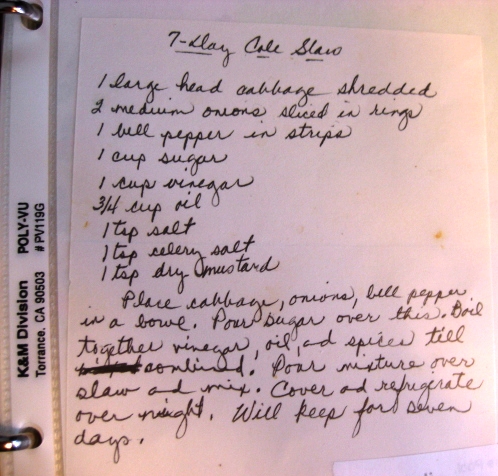 7-Day Cole Slaw
1 large head cabbage shredded
2 medium onions sliced in rings
1 bell pepper in strips
1 cup sugar
1 cup vinegar
3/4 cup oil
1 tsp salt
1 tsp celery salt
1 tsp dry mustard
Place cabbage, onions, bell pepper
in a bowl. Pour sugar over this. Boil
together vinegar, oil, and spices till
combined. Pour mixture over
slaw and mix. Cover ad refrigerate
over night. Will keep for seven
days.
K&M Division POLY-VU
Torrance, CA 90503 # PV119G